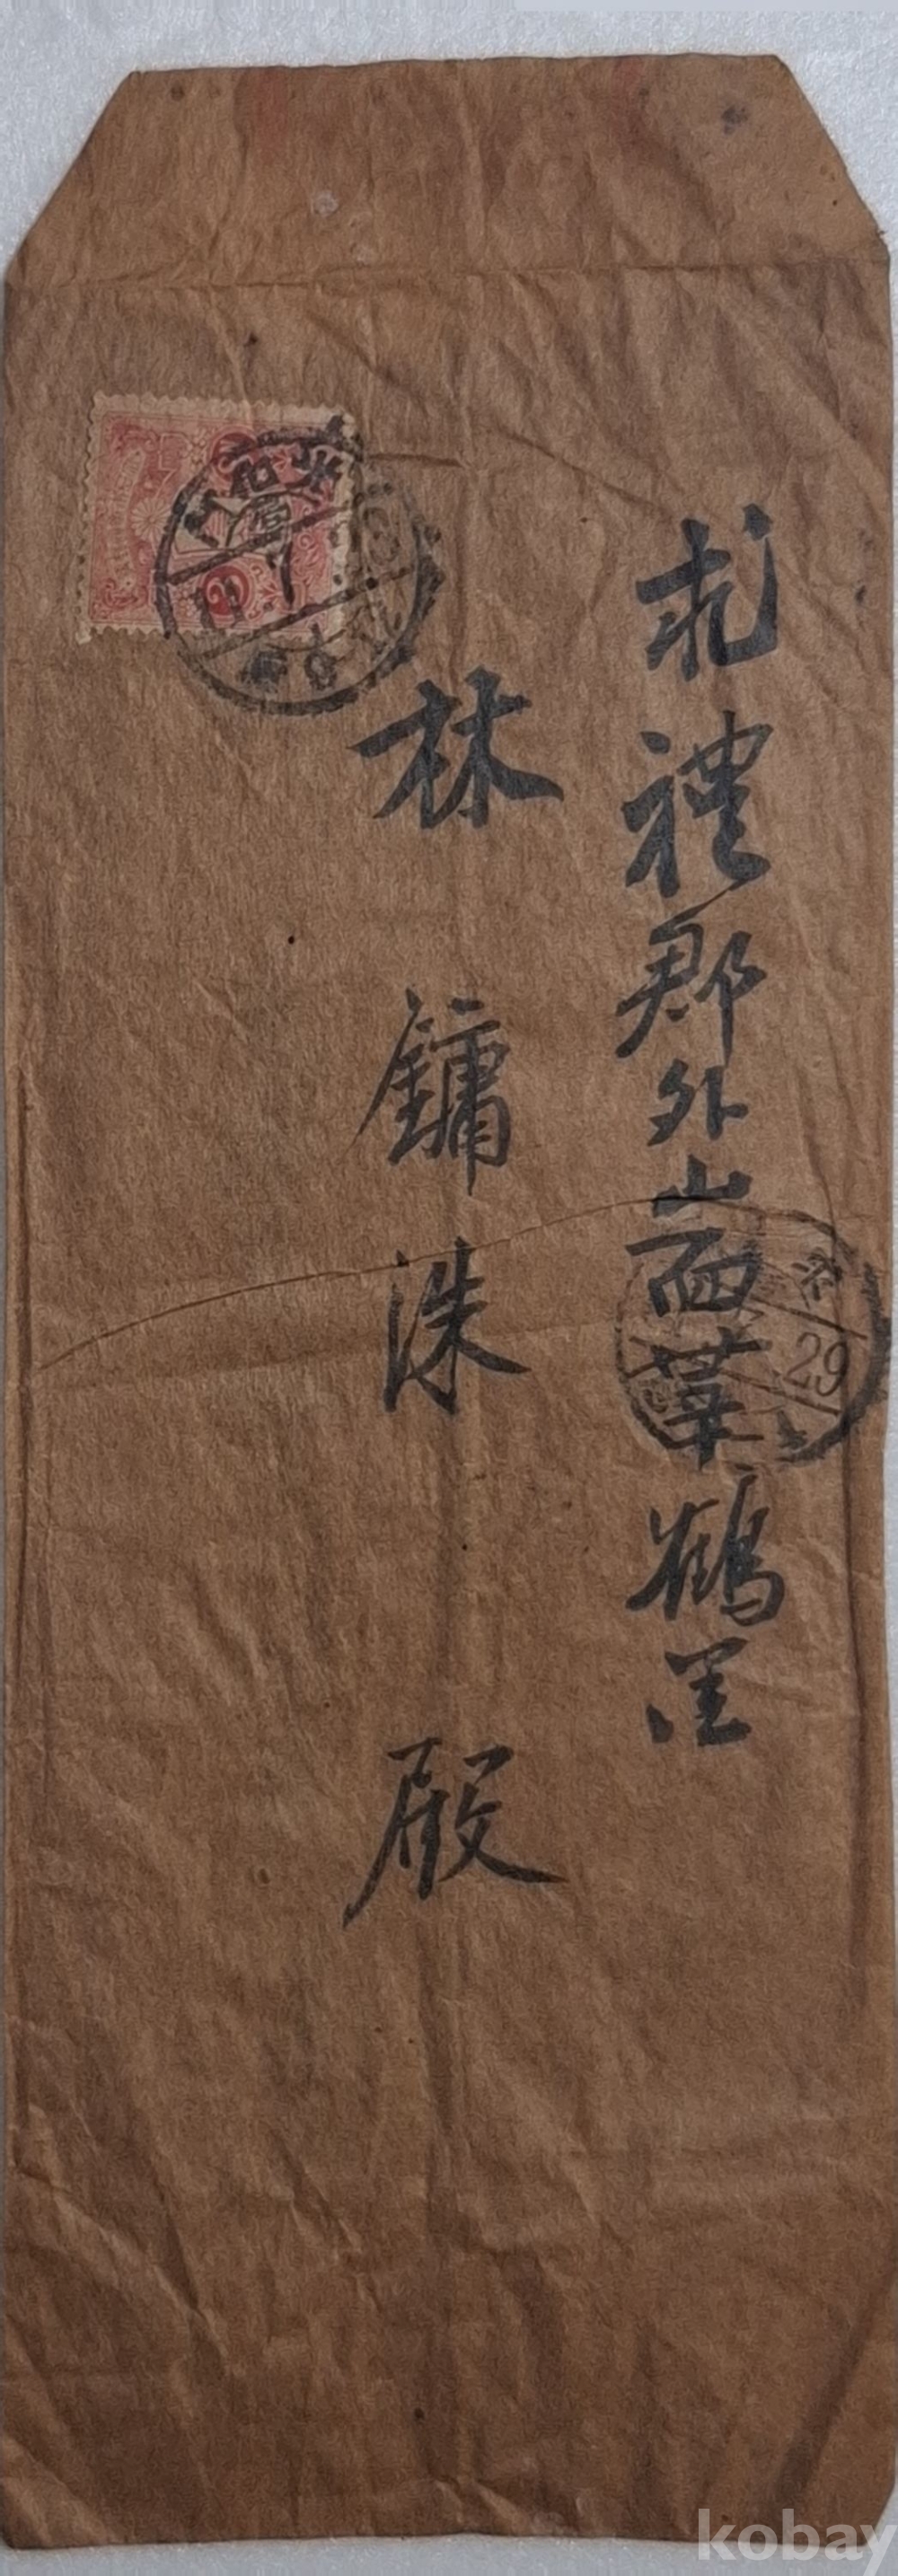 求禮郡外山面華鶴里
林鏞洙
殿
29
kobay